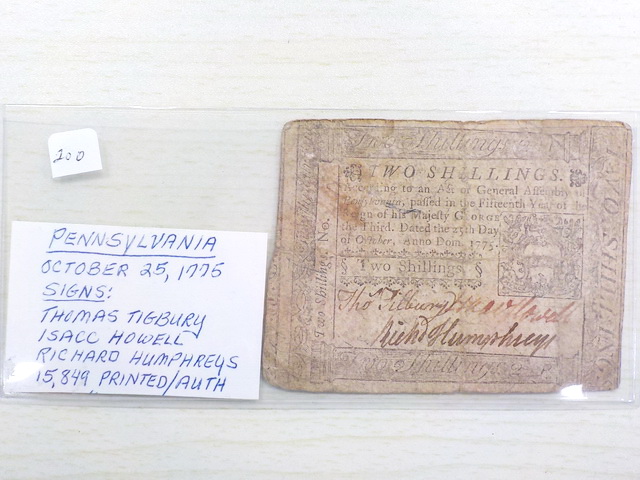 200
PENNSYLVANIA
OCTOBER 25, 1775
SIGNS:
THOMAS TIGBURY
ISACC HOWELL
RICHARD HUMPHREYS
15,849 PRINTED/AUTH
Two Shillings
TWO SHILLINGS.
According to an Act of General Assembly
passed in the Fifteenth Year of
of his Majesty GEORGE
the Third. Dated the 25th Day
of October, Anno Dom. 1775.
Two Shillings
Tho Tilbury
Richd Humphreys
Two Shillings
Two Shillings. No.
TWO SHILLINGS